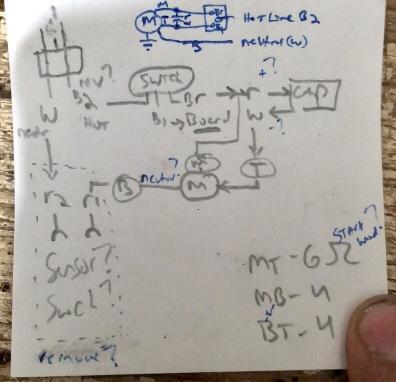 M
M T r
Hot Line B2
neutral (w)
B
NV?
Switch
+?
B2 Br r cap
W Hot B1 → Board W
neutr -?
?
neutral M T
B
r2 r1
2 2
Sensor?
Swch?
remove?
START? wind.
MT - 6Ω
MB - 4
BT - 4